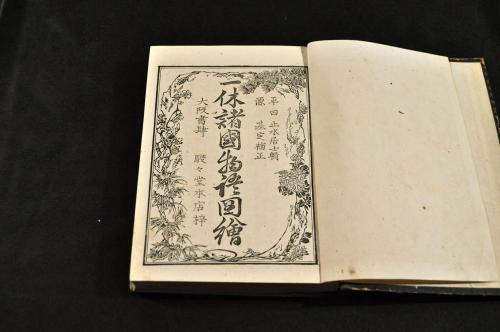 平田 止水居士輯
源 基定補正
一休諸國物語図繪
大阪書肆 駸々堂本店梓